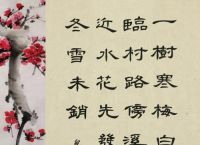 一樹寒梅白
臨村路傍溪
近水花先發
冬雪未銷